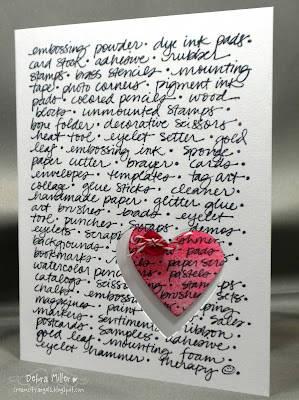 embossing powder • dye ink pads •
card stock • adhesive • rubber
stamps • brass stencils • mounting
tape • photo corners • pigment ink
pads • colored pencils • wood
blocks • unmounted stamps •
bone folder • decorative scissors •
heat tool • eyelet setter • gold
leaf • embossing ink • sponge •
paper cutter • brayer • cards •
envelopes • templates • tag art •
collage • glue sticks • cleaner •
handmade paper • glitter glue •
art brushes • beads • eyelet
tool • punches • demos •
eyelets • scraps
backgrounds • pads •
bookmarks • paper
watercolor pencils • pastels •
catalogs • scissors • stamps •
chalks • embossing brushes •
magazines • paint
markers • sentiments • ribbon •
postcards • samples • adhesive •
gold leaf • mounting foam •
eyelet hammer • therapy ☺
Debra Miller